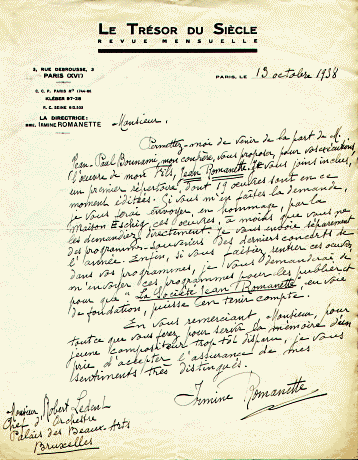 LE TRÉSOR DU SIÈCLE
REVUE MENSUELLE
3, RUE DEBROUSSE, 3
PARIS (XVI)
PARIS, LE 13 octobre 1938
C. C. P. PARIS
KLÉBER 97-38
R. C. SEINE
LA DIRECTRICE:
IRMINE ROMANETTE
Monsieur,
Permettez-moi de venir de la part de M.
Jean-Paul Bonnami, mon confrère, vous proposer, pour vos exécutions,
l'œuvre de mon fils, Jean Romanette. Je vous joins inclus,
un premier répertoire, dont 19 œuvres sont en ce
moment éditées. Si vous m'en faites la demande,
je vous ferai envoyer, en hommage, par la
Maison Eschig, ces œuvres, à moins que vous ne
les demandiez directement. Je vous envoie séparément
des programmes-souvenirs des derniers concerts de
l'année. Enfin, si vous faisiez rentrer ces œuvres
dans vos programmes, je vous demanderai de
m'envoyer ces programmes pour les publier et
pour que "La Société Jean Romanette", en voie
de fondation, puisse en tenir compte.
En vous remerciant, Monsieur, pour
tout ce que vous ferez pour servir la mémoire d'un
jeune compositeur trop tôt disparu, je vous
prie d'accepter l'assurance de mes
sentiments très distingués.
Irmine Romanette
Monsieur Robert Ledent
Chef d'Orchestre
Palais des Beaux-Arts
Bruxelles